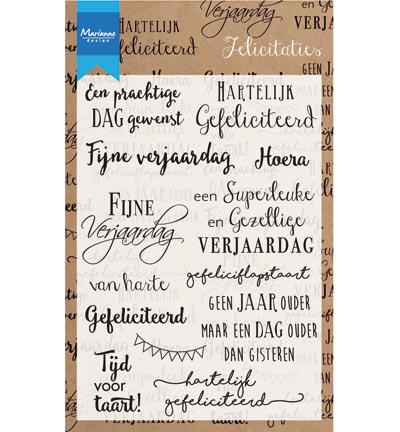 Marianne
design
Verjaardag
HARTELIJK
Gefeliciteerd
VERJAARDAG
Felicitaties
GEEN JAAR
Een prachtige
DAG gewenst
HARTELIJK
Gefeliciteerd
Fijne verjaardag
Hoera
FIJNE
Verjaardag
een Superleuke
en Gezellige
VERJAARDAG
van harte
Gefeliciteerd
gefeliciflapstaart
GEEN JAAR OUDER
MAAR EEN DAG OUDER
DAN GISTEREN
Tijd
voor
taart!
hartelijk
gefeliciteerd